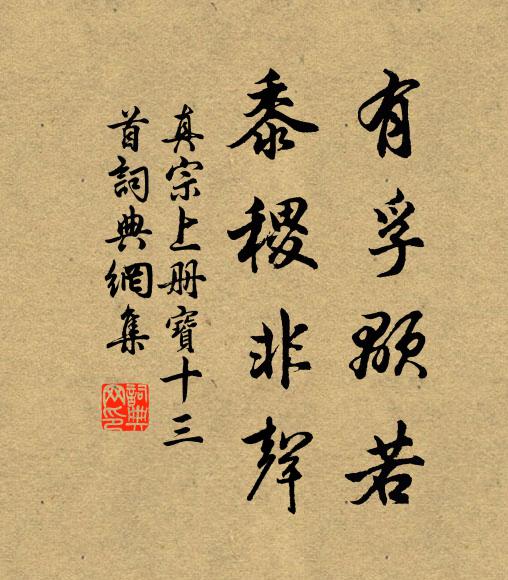 有孚顒若
黍稷非聲
真宗上册寶十三
首詞典網集
詞典
网印